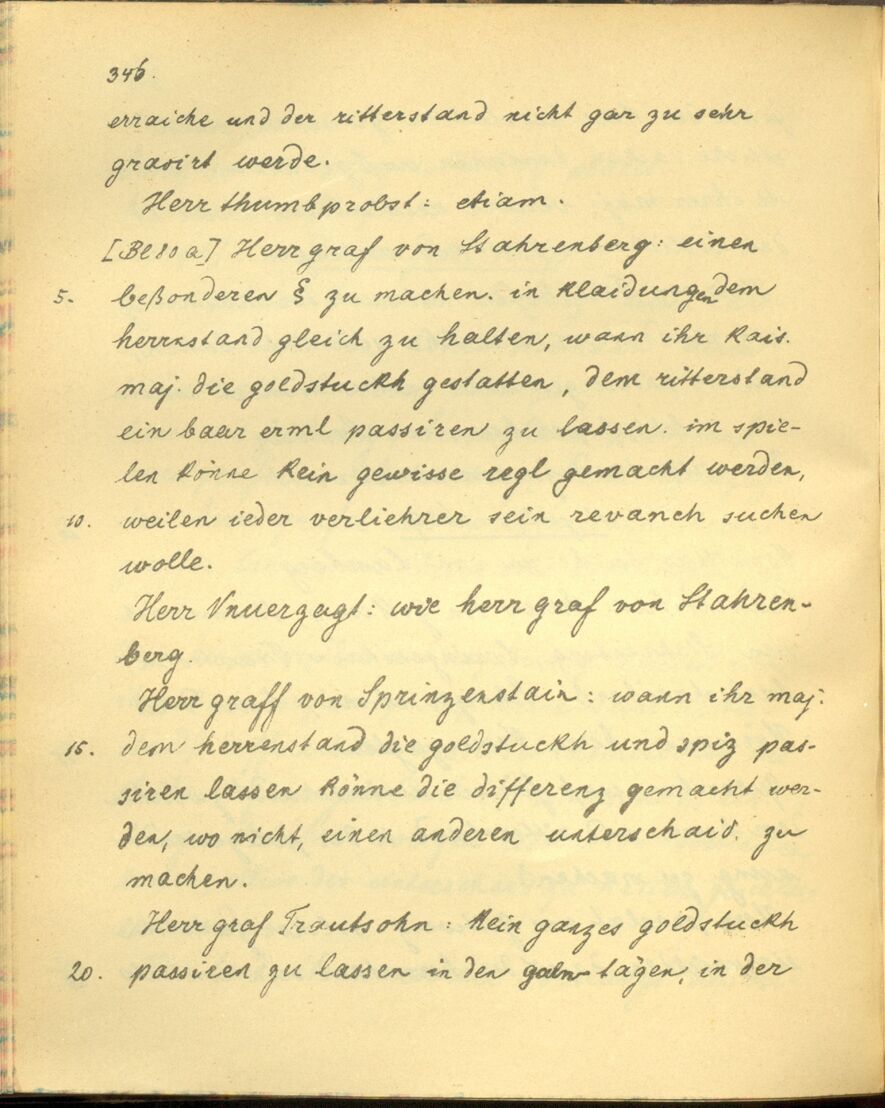 346.
erraiche und der ritterstand nicht gar zu sehr
gravirt werde.
Herr thumbprobst: etiam.
[Bl 80 a] Herr graf von Stahrenberg: einen
5. beßonderen § zu machen. in klaidungen dem
herrnstand gleich zu halten, wann ihr kais.
maj. die goldstuckh gestatten, dem ritterstand
ein baar erml passiren zu lassen. im spie-
len könne kein gewisse regl gemacht werden,
10. weilen ieder verliehrer sein revanch suchen
wolle.
Herr Vnuerzagt: wie herr graf von Stahren-
berg.
Herr graff von Sprinzenstain: wann ihr maj.
15. dem herrenstand die goldstuckh und spiz pas-
siren lassen könne die differenz gemacht wer-
den, wo nicht, einen anderen unterschaid zu
machen.
Herr graf Trautsohn: kein ganzes goldstuckh
20. passiren zu lassen in den gala-tägen, in der